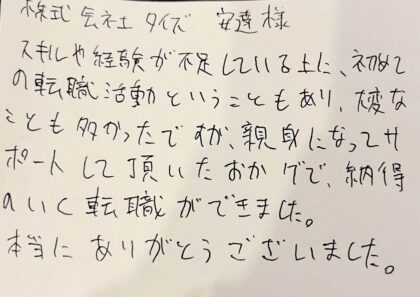 株式会社タイズ 安達様
スキルや経験が不足している上に、初めて
の転職活動ということもあり、大変な
ことも多かったですが、親身になってサ
ポートして頂いたおかげで、納得
のいく転職ができました。
本当にありがとうございました。